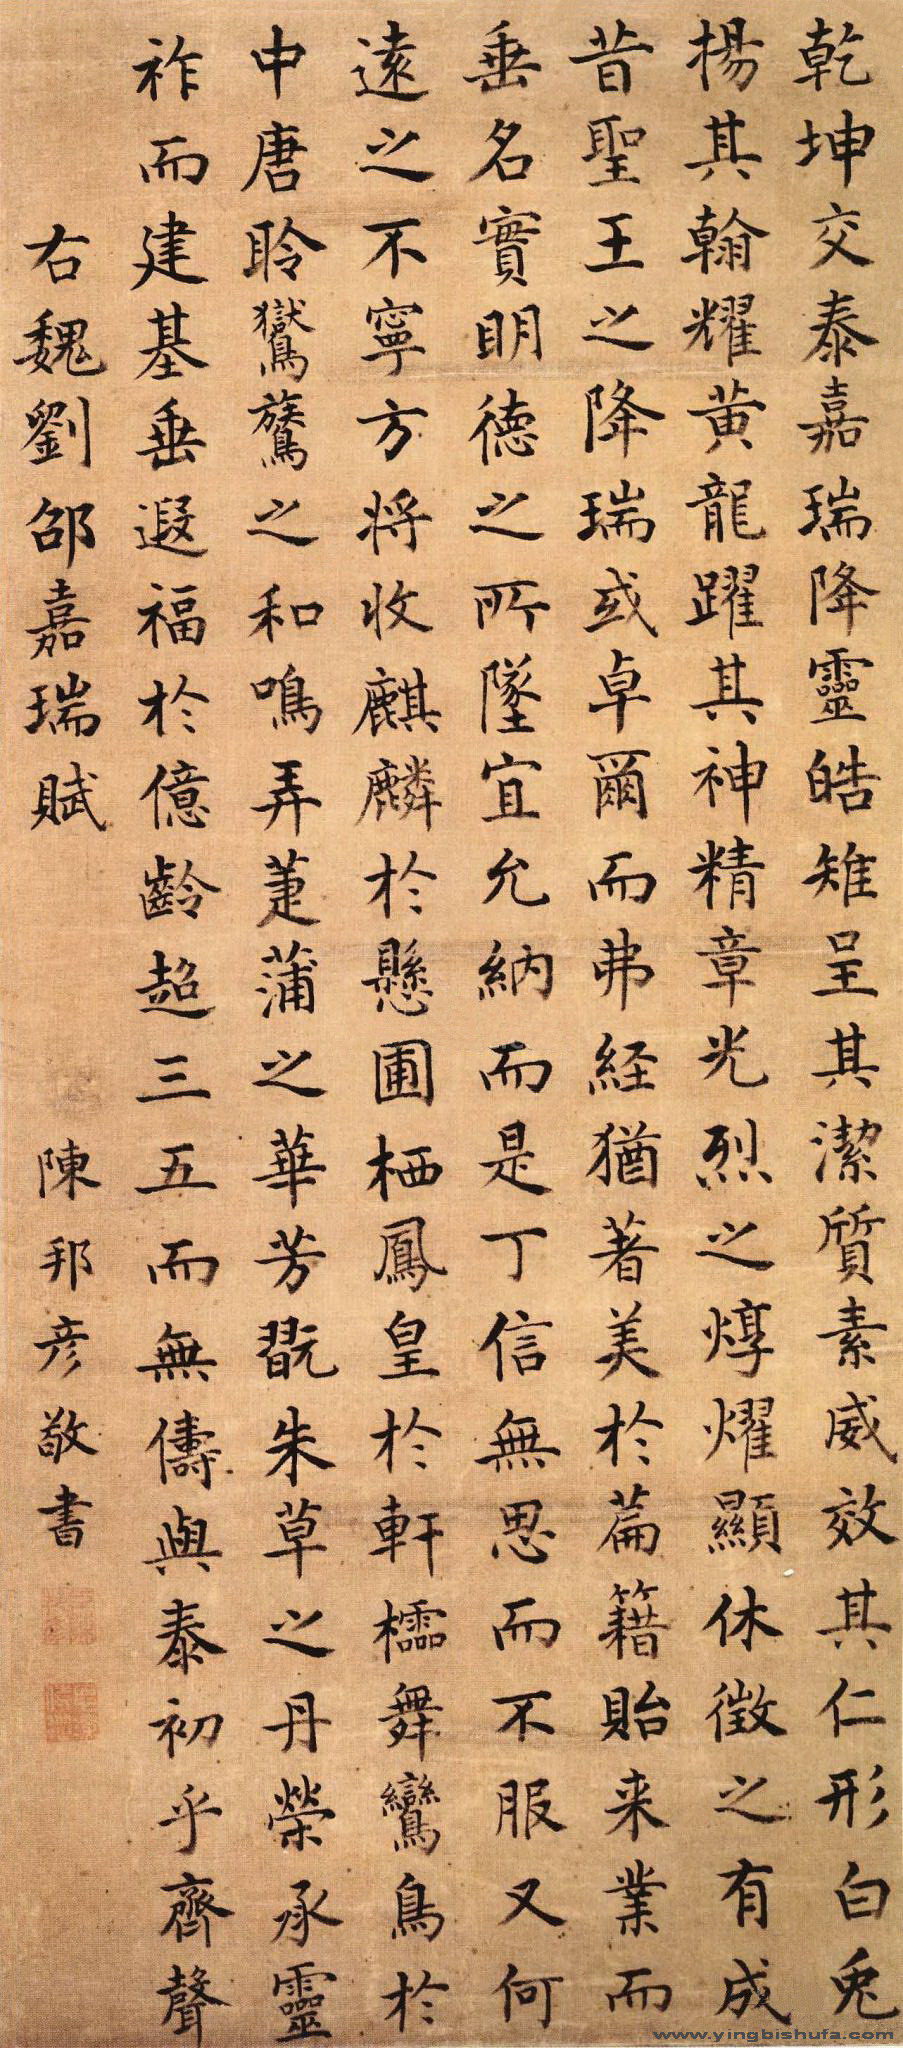 乾坤交泰嘉瑞降靈皓雉呈其潔質素威效其仁形白兎
揚其翰耀黃龍躍其神精章光烈之焞燿顯休徵之有成
昔聖王之降瑞或卓爾而弗経猶著美於篇籍貽来業而
垂名實明德之所墜宜允納而是丁信無思而不服又何
遠之不寧方将收麒麟於懸圃栖鳳皇於軒櫺舞鸞鳥於
中唐聆鸑鷟之和鳴弄萐蒲之華芳翫朱草之丹榮承靈
祚而建基垂遐福於億齡超三五而無儔與泰初乎齊聲
右魏劉邵嘉瑞賦
陳邦彦敬書
www.yingbishufa.com